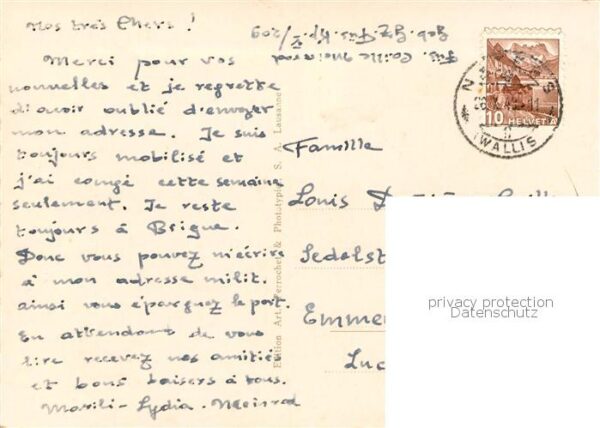 Nos très Chers!
Merci pour vos
nouvelles et je regrette
d'avoir oublié d'envoyer
mon adresse. Je suis
toujours mobilisé et
j'ai congé cette semaine
seulement. Je reste
toujours à Brigue.
Donc vous pouvez m'écrire
à mon adresse milit.
ainsi vous éparguez le port.
En attendant de vous
lire recevez nos amitiés
et bons baisers à tous.
Marili - Lydia - Meinrad
Füs. Meinrad
Geb. Gz. Füs. Kp. I/209
Edition Art. Perrochet & Phototypie S. A. Lausanne
10 HELVETIA
(WALLIS)
Famille
Louis
Sedelst
Emme
Luc
privacy protection
Datenschutz